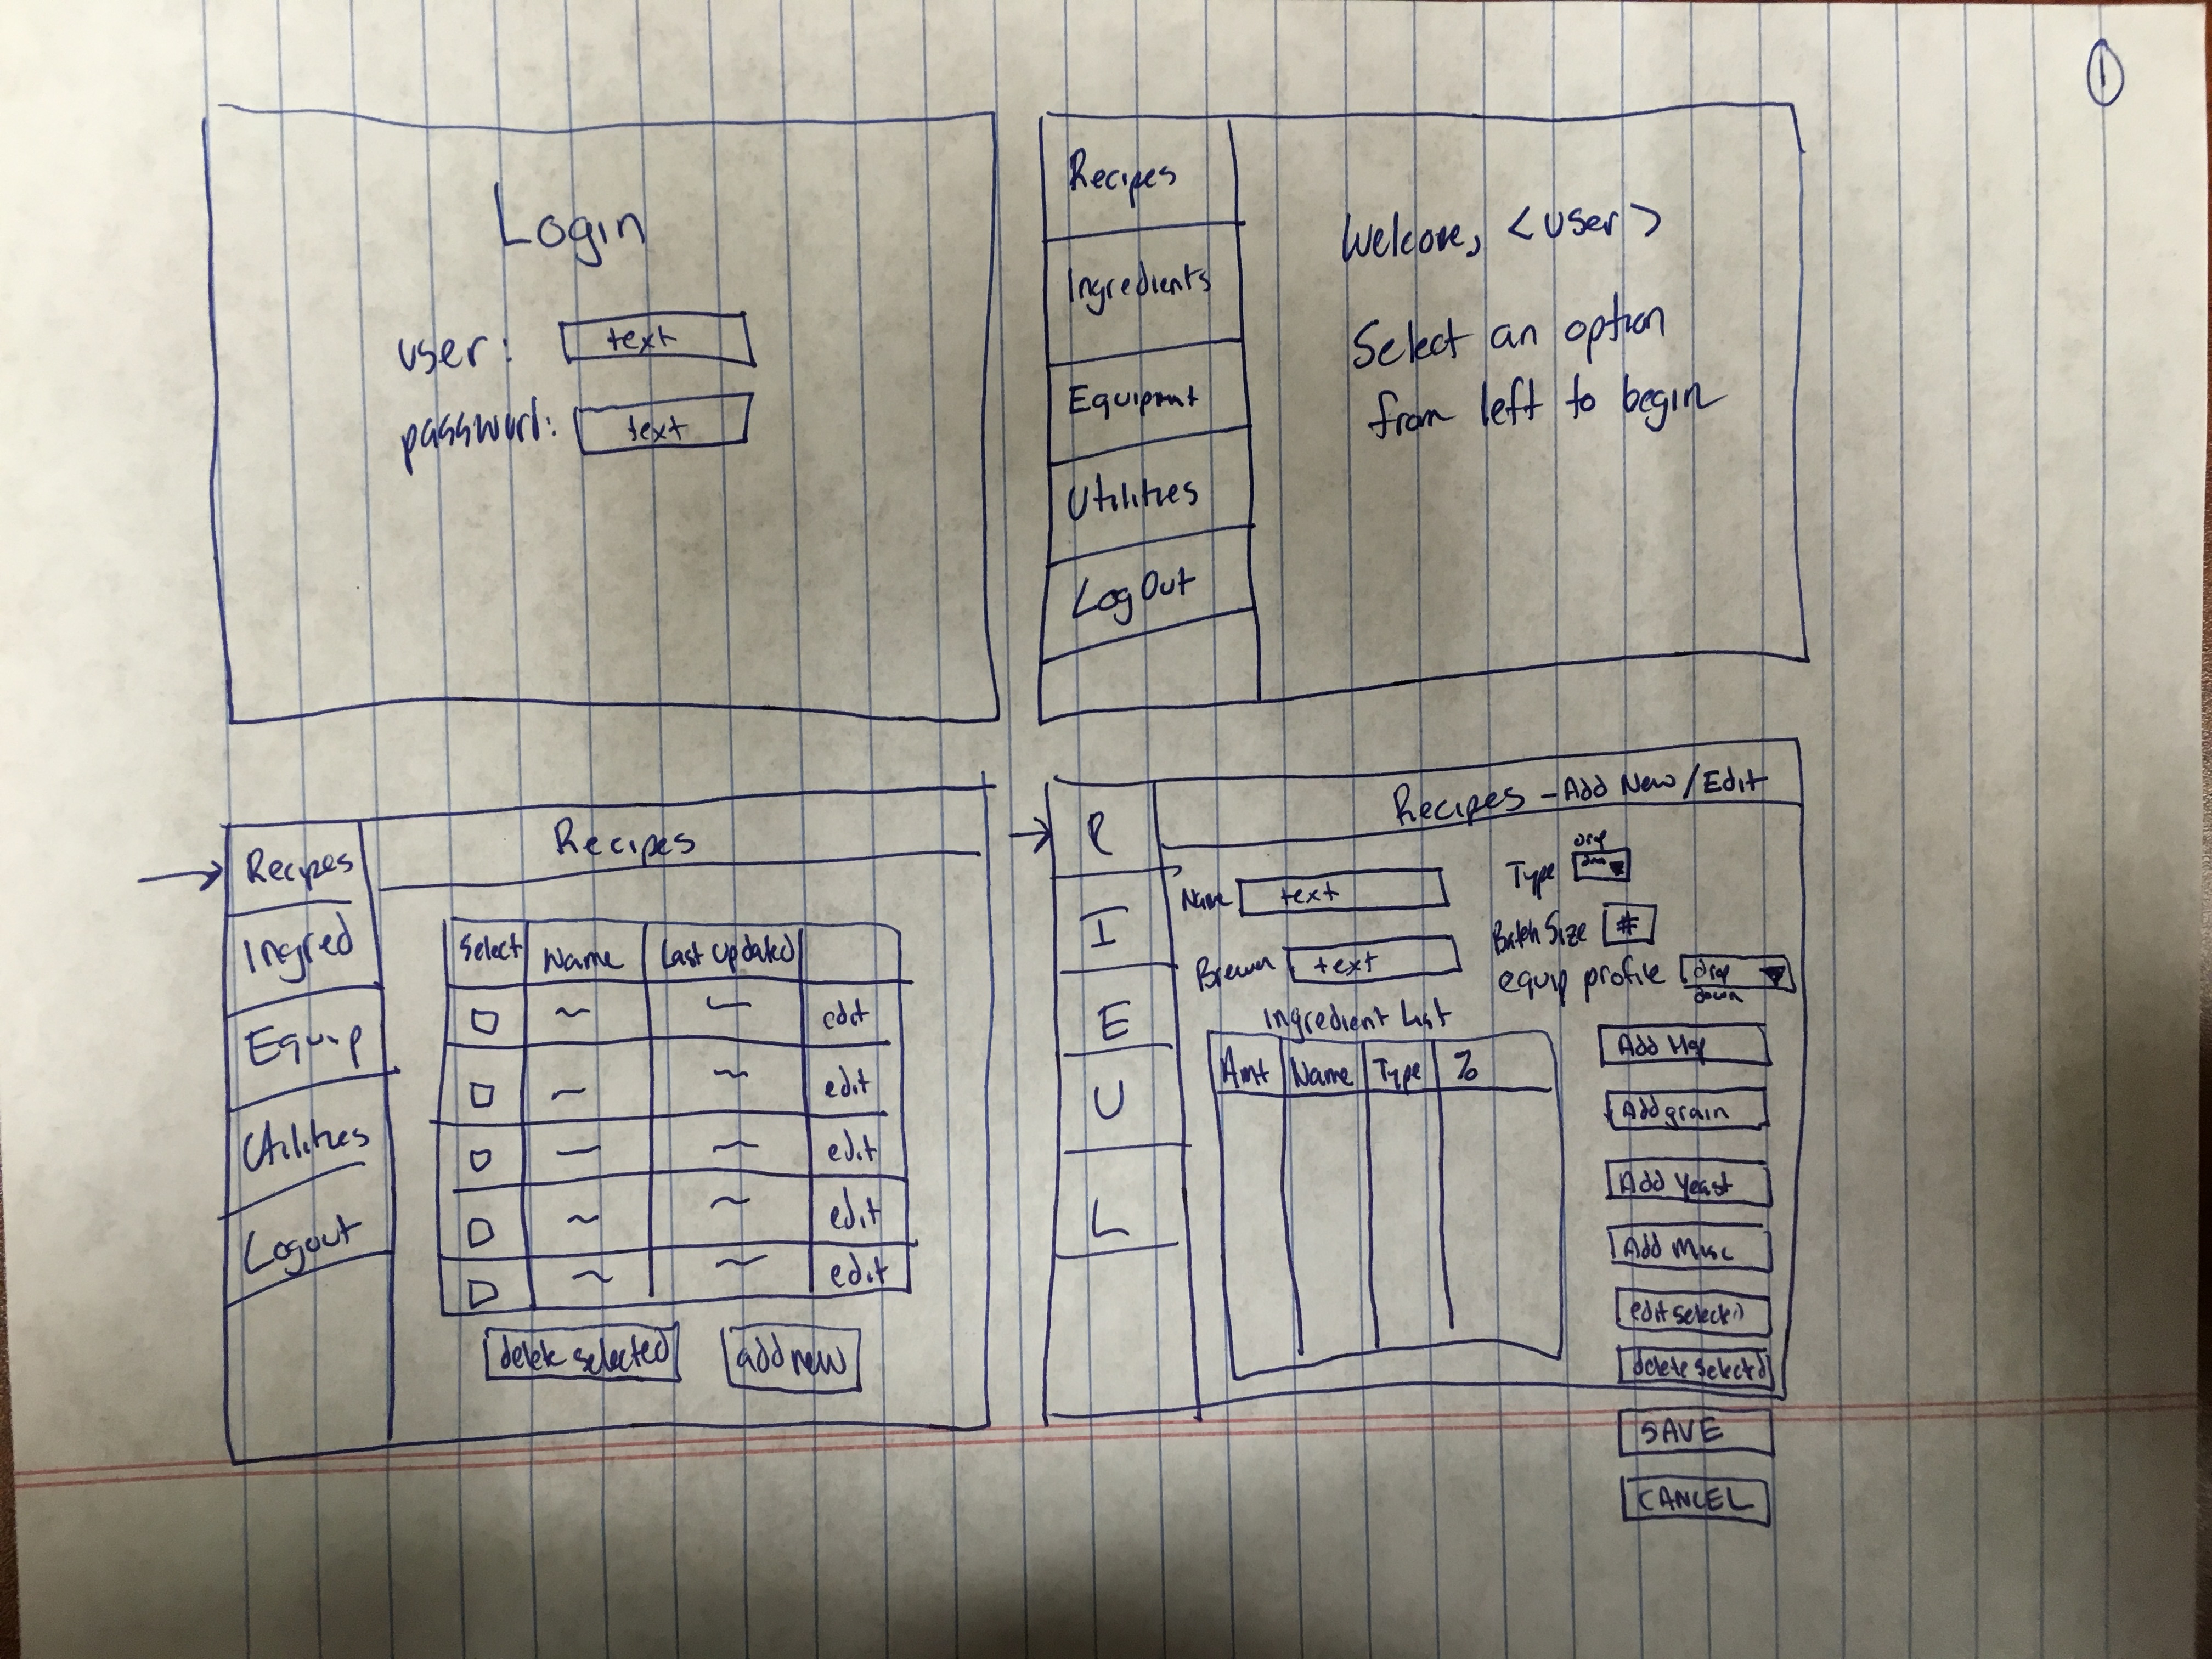 1
Login
user: text
password: text
Recipes
Ingredients
Equipmnt
Utilities
LogOut
Welcome, <user>
Select an option
from left to begin
Recipes
Ingred
Equip
Utilities
Logout
Recipes
Select Name Last Updated
edit
edit
edit
edit
edit
delete selected add new
R
I
E
U
L
Recipes - Add New/Edit
Name text
Type drop down
Brewer text
Batch Size #
equip profile drop down
Ingredient List
Amt Name Type %
Add Hop
Add grain
Add Yeast
Add Misc
edit selected
delete selected
SAVE
CANCEL